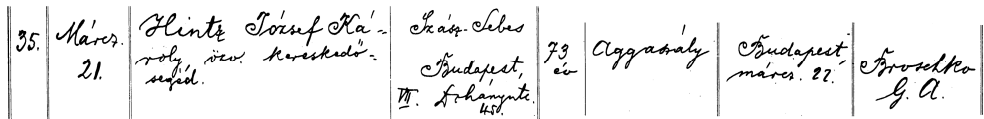 35.
Márcz.
21.
Hintz József Ká-
roly özv. kereskedő-
segéd.
Szász-Sebes
Budapest,
VII. Dohányutc.
45.
73
év
Aggaszály
Budapest
márcz. 22.
Broschko
G. A.